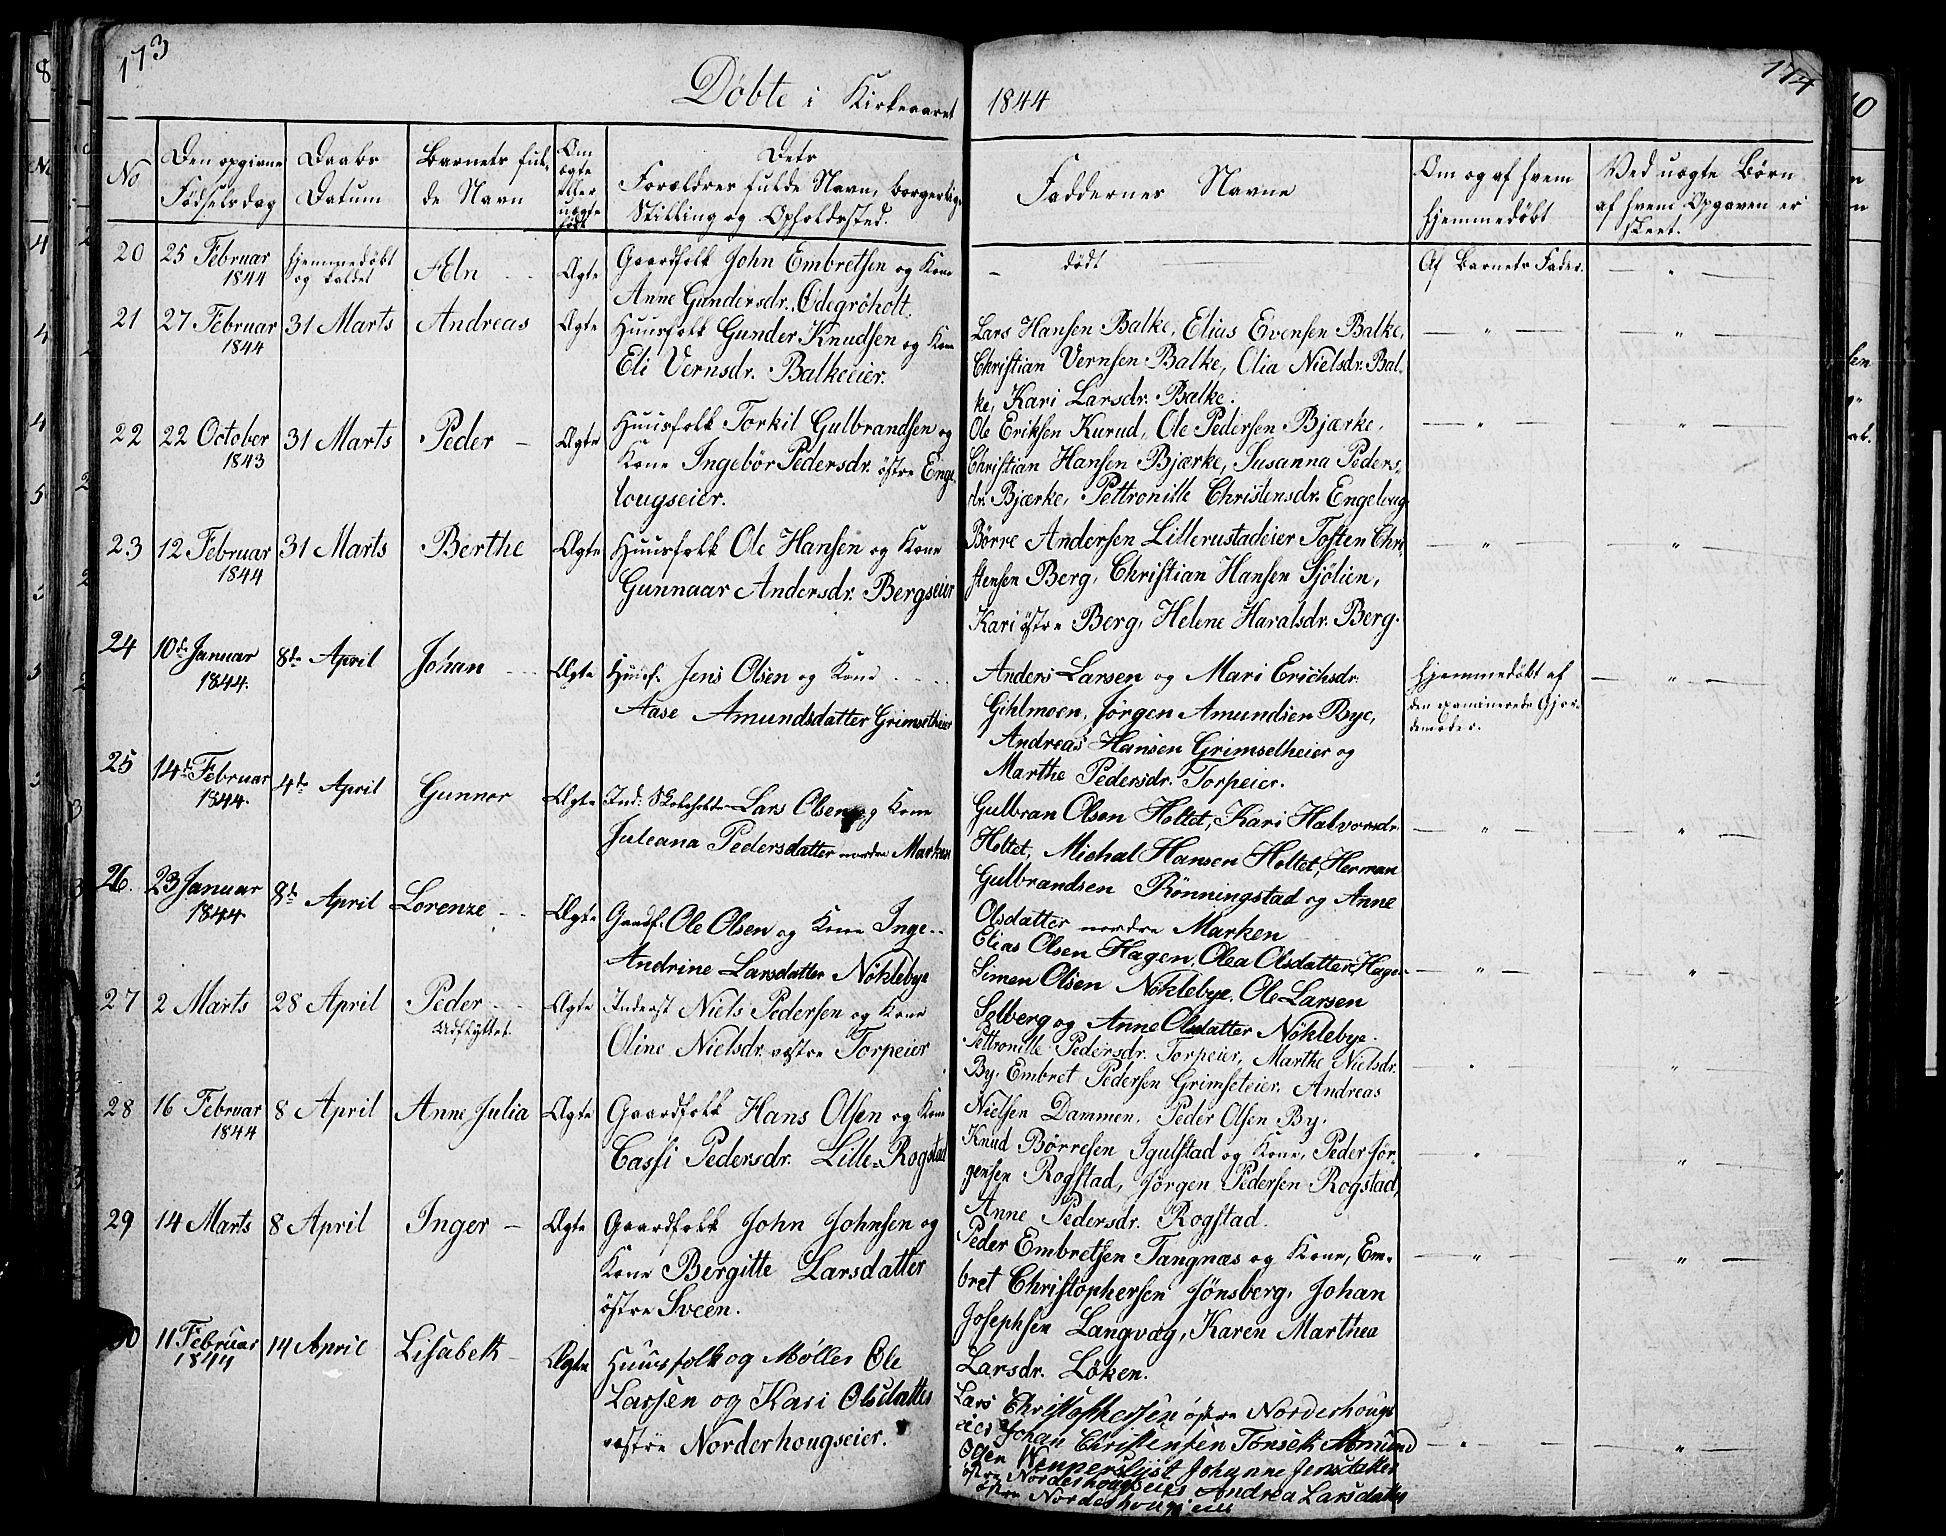 173
174
Døbte i Kirkeaaret 1844
No
Den opgivne Fødselsdag
Daabs Datum
Barnets fulde Navn
Om ægte eller uægte født
Dets Forældres fulde Navn, borgerlige Stilling og Opholdssted.
Faddernes Navne
Om og af hvem hjemmedøbt
Ved uægte Børn af hvem Opgaven er skeet.
20 25 Februar 1844 hjemmedøbt og kaldet Æln Ægte
Gaardfolk John Embretsen og Kone
Anne Gundersdr. Ødegröholt.
dödt
Af Barnets Fader.
21 27 Februar 1844 31 Marts Andreas Ægte
Huusfolk Gunder Knudsen og Kone
Eli Vernsdr. Balkeeier.
Lars Hansen Balke, Elias Evensen Balke,
Christian Vernsen Balke, Olia Nielsdr. Bal-
ke, Kari Larsdr. Balke.
22 22 October 1843 31 Marts Peder Ægte
Huusfolk Torkil Gulbrandsen og
Kone Ingebör Pedersdr. östre Enge
lougseier.
Ole Eriksen Kurud, Ole Pedersen Bjærke,
Christian Hansen Bjærke, Susanna Peders-
dr. Bjærke, Pettronille Christensdr. Engeloug
23 12 Februar 1844 31 Marts Berthe Ægte
Huusfolk Ole Hansen og Kone
Gunnaar Andersdr. Bergseier
Börre Andersen Lillerustadeier Tosten Chri
stensen Berg, Christian Hansen Sjölien,
Kari östre Berg, Helene Haralsdr. Berg.
24 10de Januar 1844. 8de April Johan Ægte
Huusf. Jens Olsen og Kone
Aase Amundsdatter Grimselheier
Anders Larsen og Mari Erichsdr.
Gihlmoen, Jørgen Amundsen Bye,
Andreas Hansen Grimselheier og
Marthe Pedersdr. Torpeier.
Hjemmedøbt af
den examinerede Gjor-
demoder.
25 14de Februar 1844. 4de April Gunnor Ægte
Ind: Skoleholder Lars Olsen og Kone
Juleana Pedersdatter nordre Marken
Gulbran Olsen Holtet, Kari Halvorsdr.
Holtet, Michal Hansen Holtet, Herman
Gulbrandsen Rönningstad og Anne
Olsdatter nordre Marken
26. 23 Januar 1844 8de April Lorenze Ægte
Gaardf. Ole Olsen og Kone Inge-
Andrine Larsdatter Nöklebye
Elias Olsen Hagen, Olea Olsdatter Hagen
Simen Olsen Nöklebye, Ole Larsen
Solberg og Anne Olsdatter Nöklebye.
27 2 Marts 28 April Peder Udflyttet. Ægte
Inderst Niels Pedersen og Kone
Oline Nielsdr. vestre Torpeier
Pettronille Pedersdr. Torpeier, Marthe Nielsdr.
By, Embret Pedersen Grimseteier, Andreas
Nielsen Dammen, Peder Olsen By.
28 16 Februar 1844 8 April Anne Julia Ægte
Gaardfolk Hans Olsen og Kone
Cassi Pedersdr. Lille Rogstad
Knud Börresen Igulstad og Kone, Peder Jør-
gensen Rogstad, Jørgen Pedersen Rogstad,
Anne Pedersdr. Rogstad.
29 14 Marts 8 April Inger Ægte
Gaardfolk John Johnsen og
Kone Bergitte Larsdatter
östre Sveen.
Peder Embretsen Tangnæs og Kone, Em-
bret Christophersen Jönsberg, Johan
Josephsen Langvæg, Karen Marthea
Larsdr. Löken.
30 11 Februar 1844 14 April Lisabeth Ægte
Huusfolk og Møller Ole
Larsen og Kari Olsdatter
vestre Norderhougseier.
Lars Christophersen østre Norderhougs
eier Johan Christensen Tønseth Amund
Olsen Wenperslyst Johanne Jensdatter
østre Norderhougseier Andrea Larsdatter
østre Norderhougseier